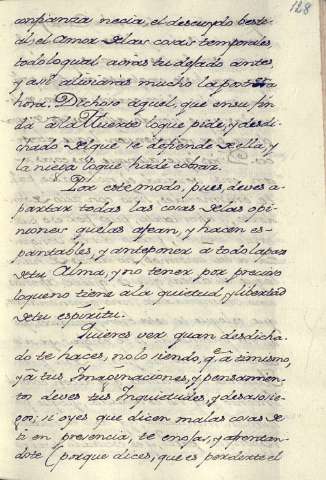 128
confianza necia, el descuydo besti-
al, el Amor de las cosas temporales,
todo lo qual auràs tu dejado antes,
y assi aliviaràs mucho la postrera
hora. Dichoso aquel, que en su fin
dà à la Muerte lo que pide, y desdi-
chado el que se defiende de ella, y
la niega lo que ha de cobrar.
Por este modo, pues, deves a-
partar todas las cosas de las opi-
niones que las afean, y hacen es-
pantables, y anteponer à todo la paz
de tu Alma, y no tener por precioso
lo que no tiene à la quietud, y libertad
de tu espiritu.
Quieres ver quan desdicha-
do te haces, no lo siendo, q.e à ti mismo,
y à tus Imaginaciones, y pensamien-
tos deves tus Inquietudes, y desasosie-
gos; si oyes que dicen malas cosas de
ti en presencia, te enojas, y afrentan-
dote (porque dices, que es perderte el